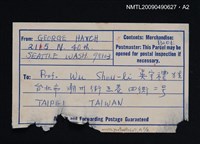 NMTL20090490627 - A2
From: GEORGE HATCH
2115 N. 42th
SEATTLE WASH 98103
Contents: Merchandise:
Postmaster: This Parcel may be
opened for postal inspection if
necessary.
To: Prof. Wu Shou-li 吳守禮 教授
台北市
TAIPEI TAIWAN
and Forwarding Postage Guaranteed